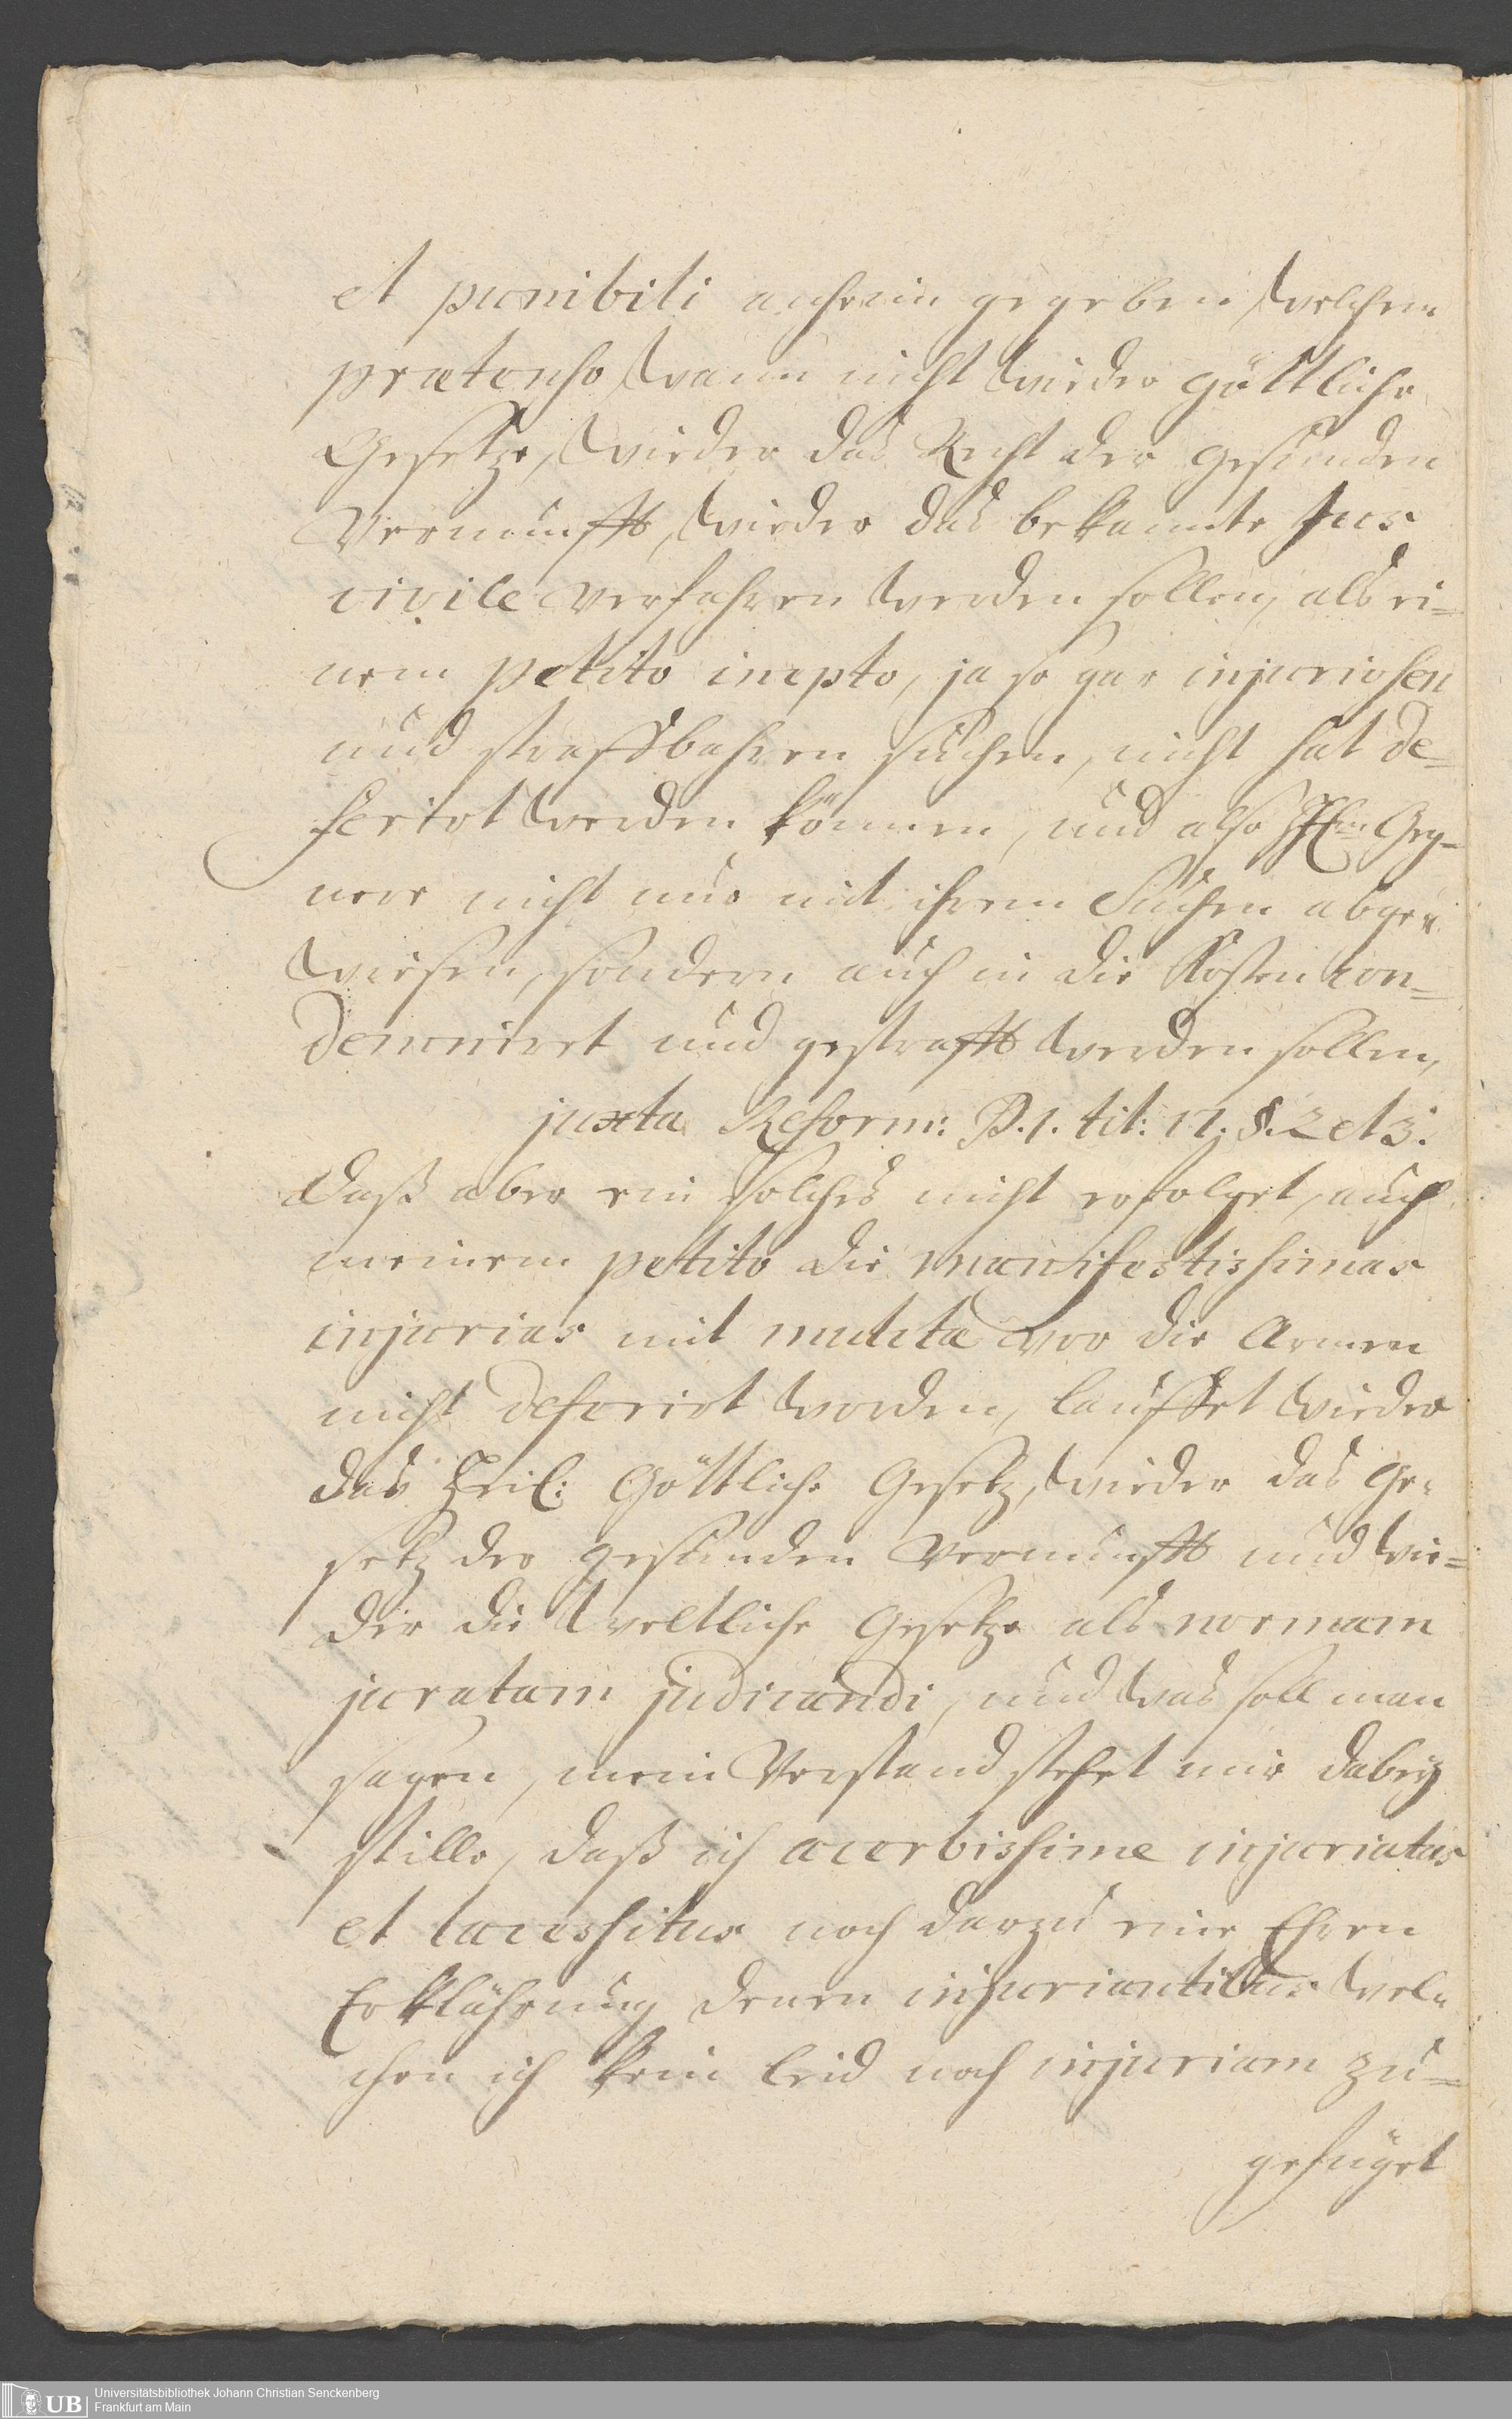 et punibili anheim gegeben, welchem
prætenso, wann nicht wieder göttliche
Gesetze, wieder das Recht der gesunden
Vernunfft, wieder das bekannte Jus
civile verfahren werden sollen, als ei=
nem petito inepto, ja so gar injuriosen
und straffbahren suchen, nicht hat de=
ferirt werden können, und also Geg=
nere nicht nur mit ihrem Suchen abge=
wiesen, sondern auch in die Kosten con=
demniret und gestrafft werden sollen,
juxta Reform: P. 1. tit: 17. §. 2 et 3.
Daß aber ein solches nicht erfolget, auch
meinem petito die manifestissimas
injurias mit mulcta vor die Armen
nicht deferirt worden, lauffet wieder
das Heil: Göttliche Gesetz, wieder das Ge=
setz der gesunden Vernunfft und wie=
der die weltliche Gesetze als normam
juratam judicandi, und was soll man
sagen, mein Verstand stehet mir dabey
stille, daß ich acerbissime injuriatus
et lacessitus noch darzu eine Ehren
Erklährung denen injuriantibus wel=
chen ich kein Leid noch injuriam zu=
gefüget
Universitätsbibliothek Johann Christian Senckenberg
Frankfurt am Main
UB